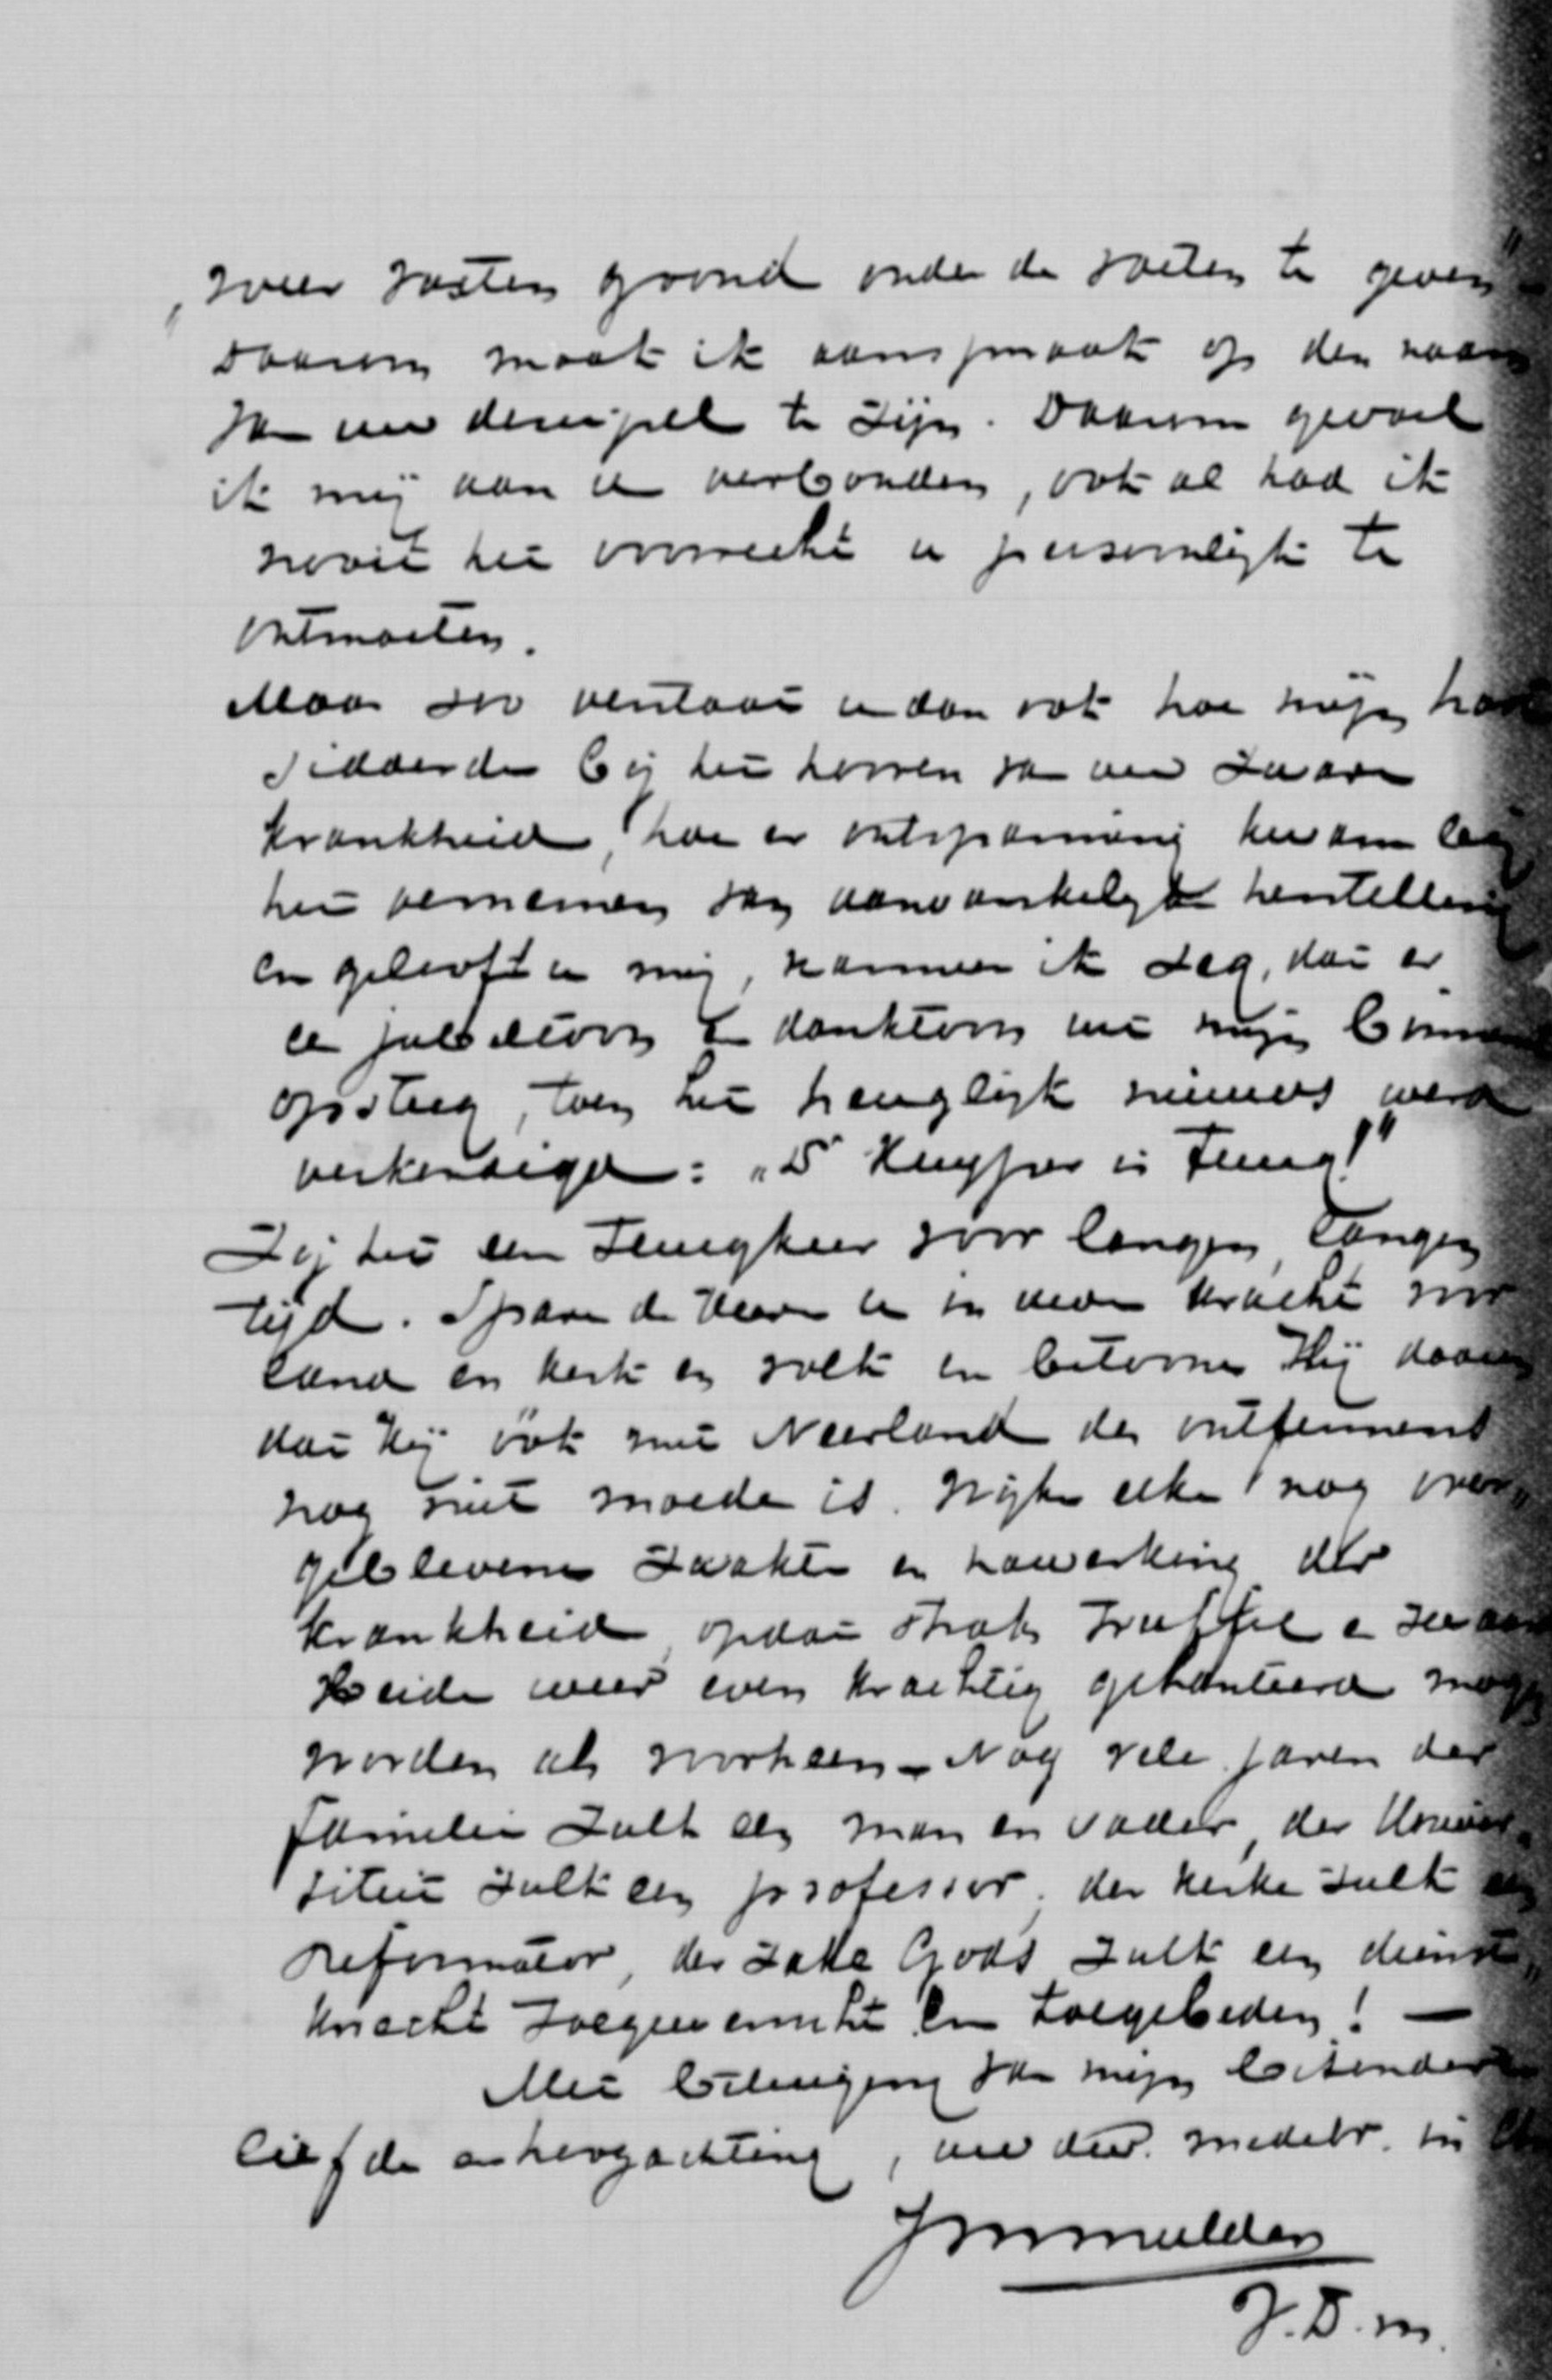 weer vasten grond onder de voeten te geven"
Daarom maak ik aanspraak op den naam
van uw discipel te zijn. Daarom gevoel
ik mij aan u verbonden, ook al had ik
nooit het voorrecht u persoonlijk te
ontmoeten.
Maar zoo verstaat u dan ook hoe mijn hart
sidderde bij het hooren van uw zware
krankheid, hoe er ontspanning kwam bij
het vernemen van aanvankelijke herstelling
en gelooft u mij, wanneer ik zeg, dat er
een jubeltoon en danktoon uit mijn binnen
opsteeg, toen het heuglijk nieuws werd
verkondigd: "Dr Kuyper is terug!"
Zij het een terugkeer voor langen, langen
tijd. Spare de Heere u in uwe kracht voor
land en kerk en volk en betoone Hij daarin
dat Hij ook met Neerland des ontfermens
nog niet moede is. Wijke elke nog over„
gebleven zwakte en nawerking der
krankheid, opdat straks troffel en zwaard
beide weer even krachtig gehanteerd mogen
worden als voorheen. Nog vele jaren der
familie zulk een man en vader, der Univer„
siteit zulk een professor, der kerke zulk een
reformator, der zake Gods zulk een dienst„
knecht toegewenscht en toegebeden! —
Met betuiging van mijn bizondere
liefde en hoogachting, uw dw. medebr. in
JMMulder
V.D.M.